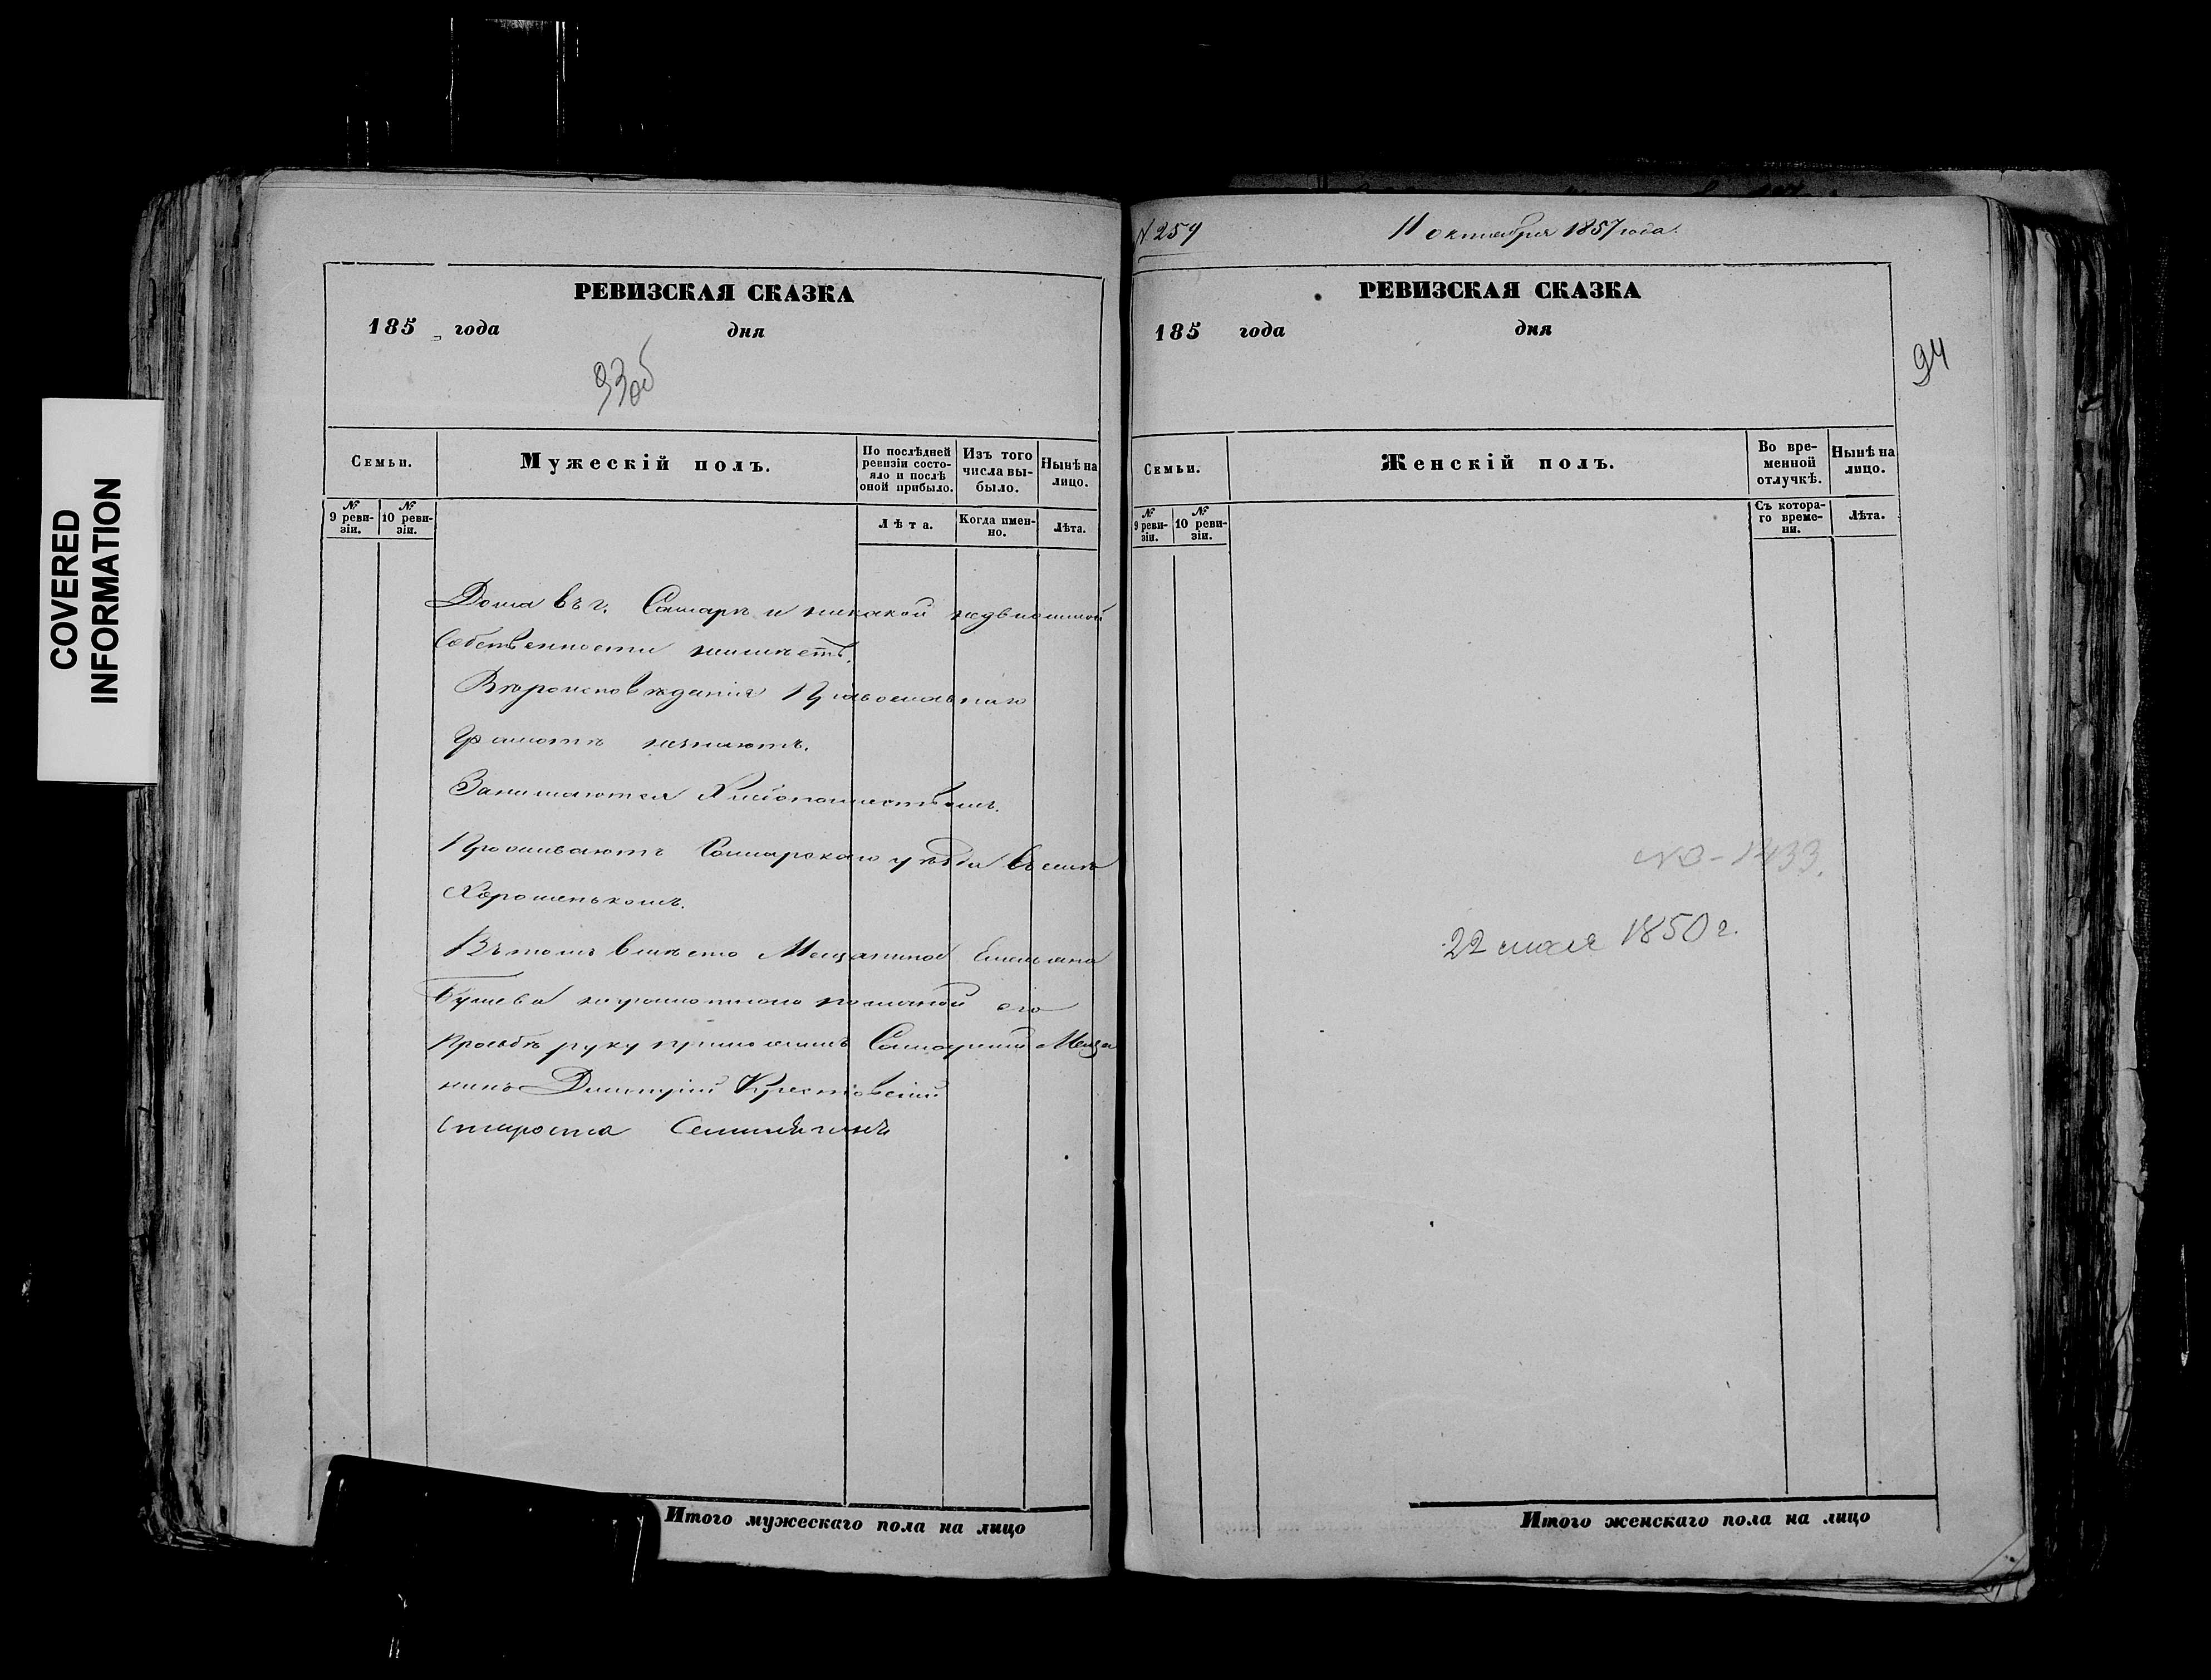 COVERED
INFORMATION
РЕВИЗСКАЯ СКАЗКА
185 года дня
93об
Семьи.
Мужескій полъ.
По послѣдней ревизіи состояло и послѣ оной прибыло.
Изъ того числа выбыло.
Нынѣ на лицо.
№ 9 ревизіи.
№ 10 ревизіи.
Лѣта.
Когда именно.
Лѣта.
Дома въ г. Самарѣ и никакой недвижимой
собственности неимѣетъ.
Вѣроисповѣданія Православнаго
Грамотѣ незнаютъ.
Занимаются Хлѣбопашествомъ.
Проживаютъ Самарскаго уѣзда въ селѣ
Хорошенькомъ.
Въ томъ вмѣсто Мещанина Емельяна
неграмотнаго по личной его
прозьбѣ руку приложилъ Самарский Меща
нинъ Дмитрій Крестовский
Староста
N 259
11 октября 1857 года.
РЕВИЗСКАЯ СКАЗКА
185 года дня
94
Семьи.
Женскій полъ.
Во временной отлучкѣ.
Нынѣ на лицо.
№ 9 ревизіи.
№ 10 ревизіи.
Съ котораго времени.
Лѣта.
№ 0-1433.
22 мая 1850 г.
Итого мужескаго пола на лицо
Итого женскаго пола на лицо